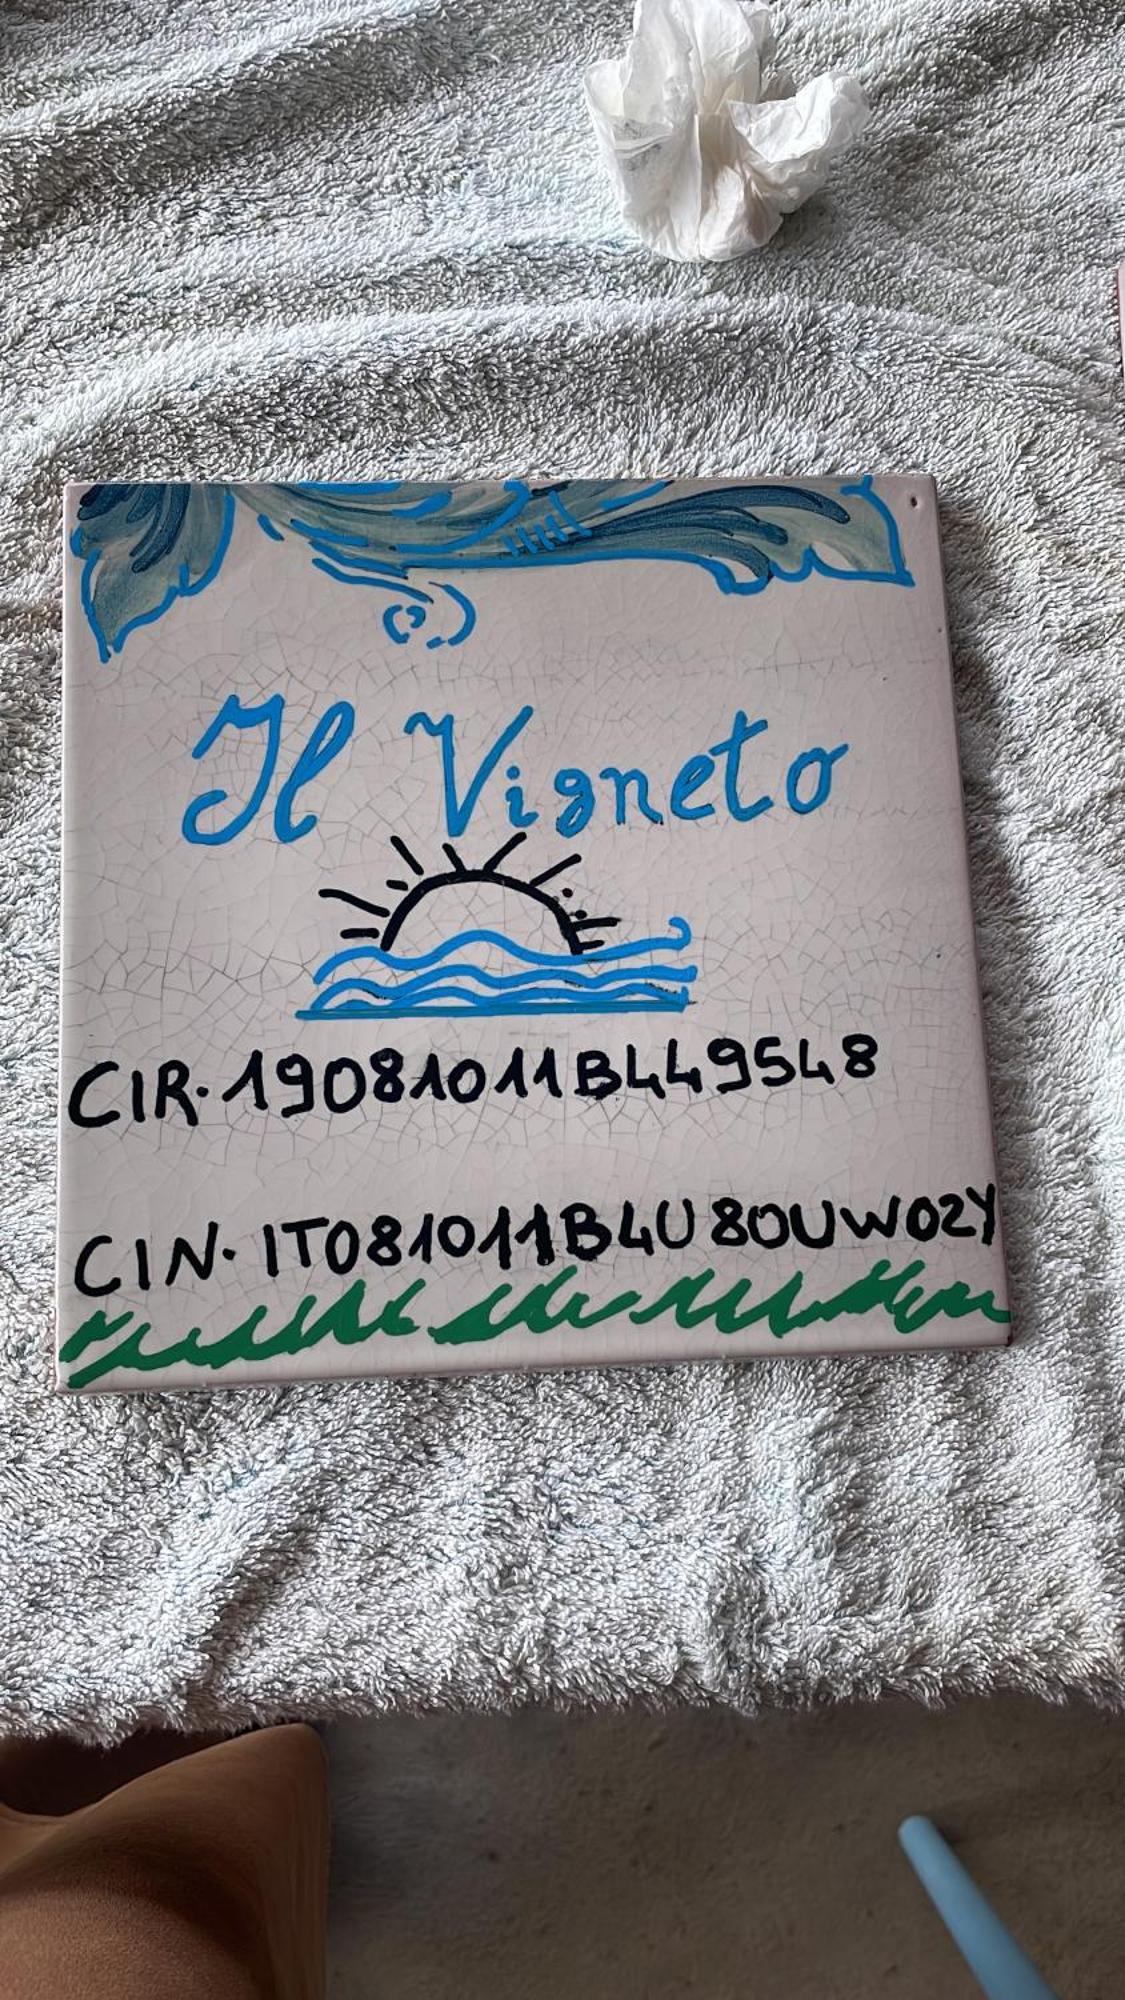 Il Vigneto
CIR. 19081011B449548
CIN. IT081011B4U80UW02Y